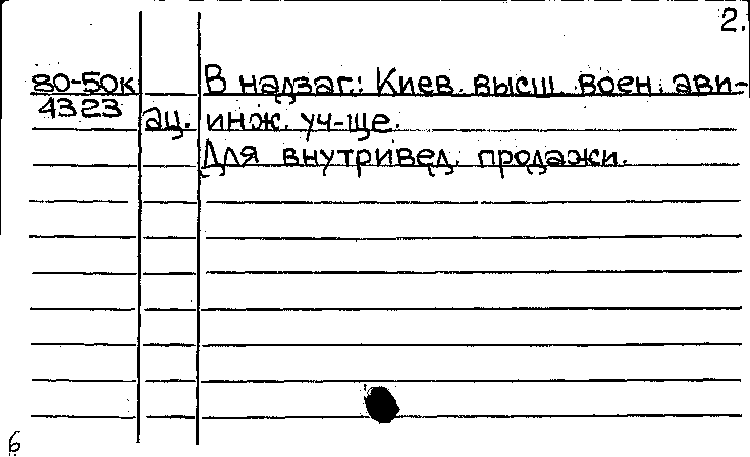 2.
80-50к В надзаг.: Киев. высш. воен. ави-
4323
ац. инж. уч-ще.
Для внутривед. продажи.
6